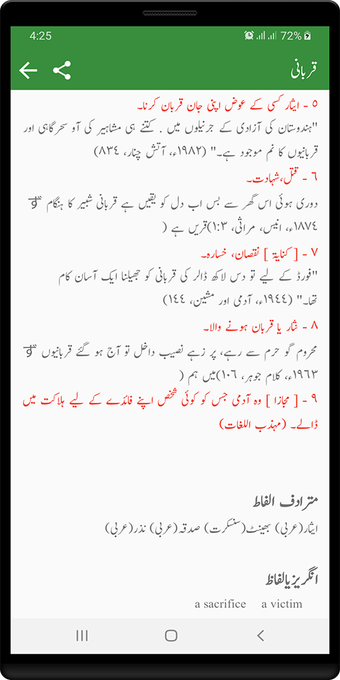 4:25 72%
قربانی
٥ - ایثار کسی کے عوض اپنی جان قربان کرنا۔
"ہندوستان کی آزادی کے جرنیلوں میں . کتنے ہی مشاہیر کی آہ سحرگاہی اور
قربانیوں کا نم موجود ہے۔" (١٩٨٢ء، آتش چنار، ٨٣٤)
٦ - قتل، شہادت۔
دوری ہوئی اس گھر سے بس اب دل کو یقیں ہے قربانی شبیر کا ہنگام
١٨٧٤ء، انیس، مراثی، ١:٣)قریں ہے (
٧ - [ کنایۃ ] نقصان، خسارہ۔
"فورڈ کے لیے تو دس لاکھ ڈالر کی قربانی کو جھیلنا ایک آسان کام
تھا۔" (١٩٤٤ء، آدمی اور مشین، ١٤٤)
٨ - نثار یا قربان ہونے والا۔
محروم گو حرم سے رہے، پر زہے نصیب داخل تو آج ہو گئے قربانیوں
١٩٦٣ء، کلام جوہر، ١٠٦)میں ہم (
٩ - [ مجازا ] وہ آدمی جس کو کوئی شخص اپنے فائدے کے لیے ہلاکت میں
ڈالے۔ (مہذب اللغات)
مترادف الفاظ
ایثار(عربی) بھینٹ(سنسکرت) صدقہ(عربی) نذر(عربی)
انگریزی الفاظ
a sacrifice a victim